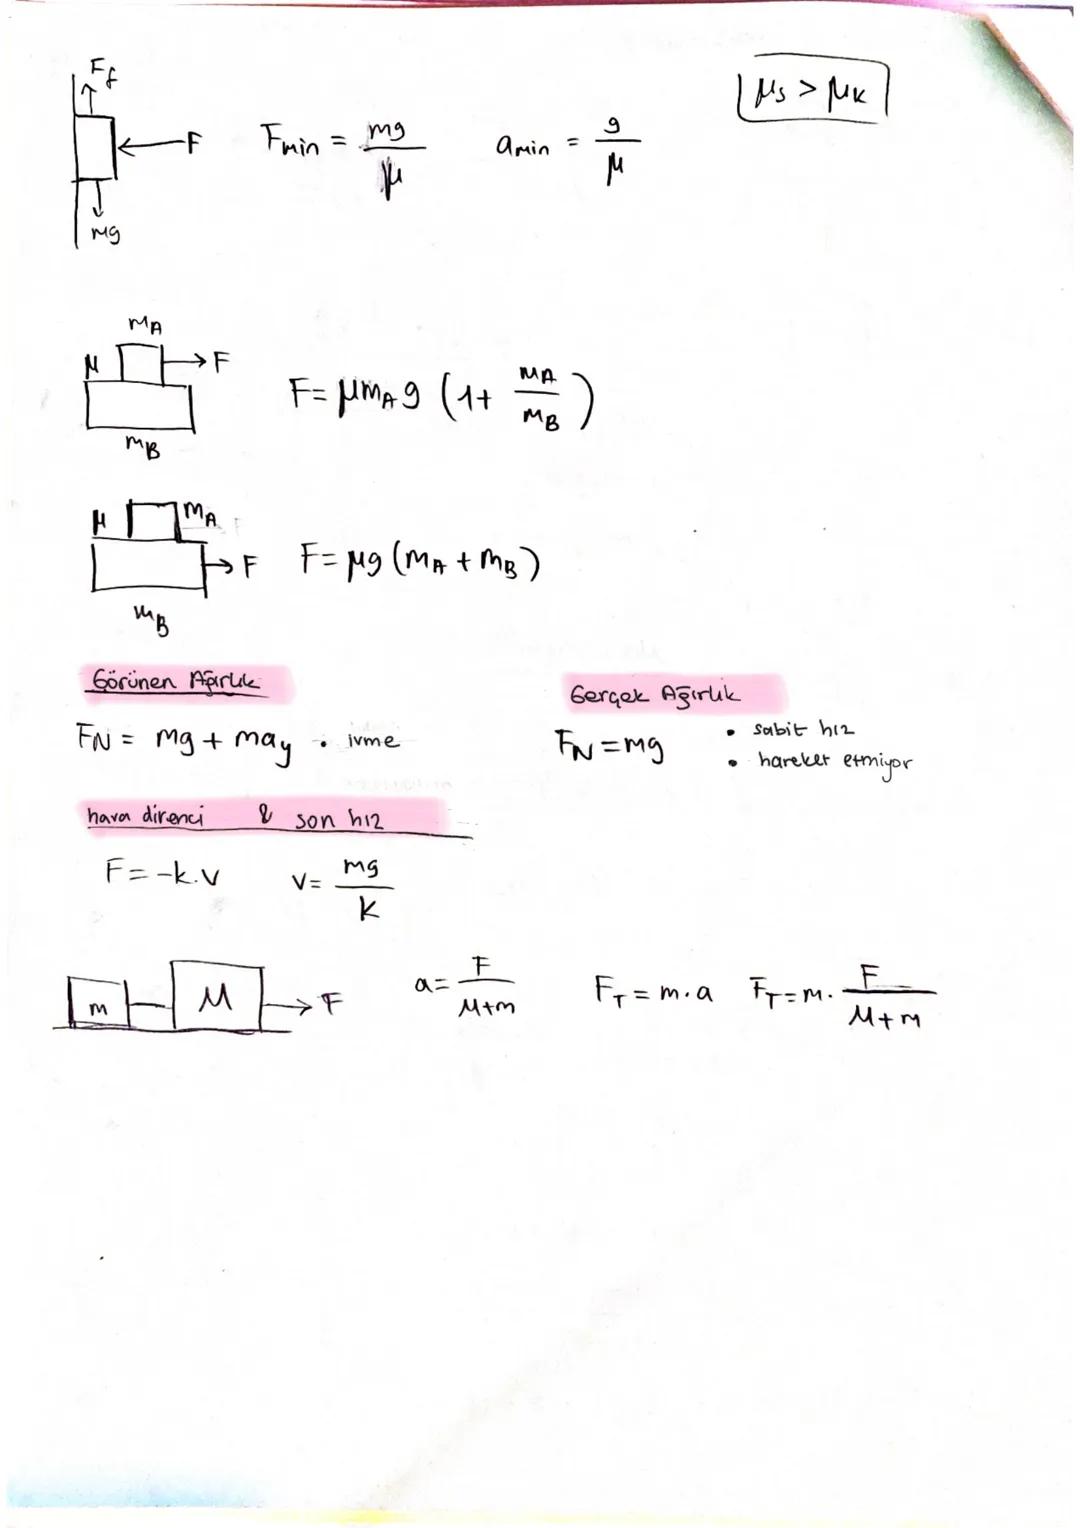 Ff
F
mg
Fmin = mg/μ
amin = g/μ
μs > μk
mA
μ
F
mB
F= μmAg (1+ mA/mB)
μ
mA
F
mB
F= μg (mA + mB)
Görünen Ağırlık
FN = mg + may • ivme
Gerçek Ağırlık
FN = mg
• sabit hız
• hareket etmiyor
hava direnci & son hız
F= -k.v
v= mg/k
m
M
F
a= F/M+m
FT = m.a
FT = m. F/M+m